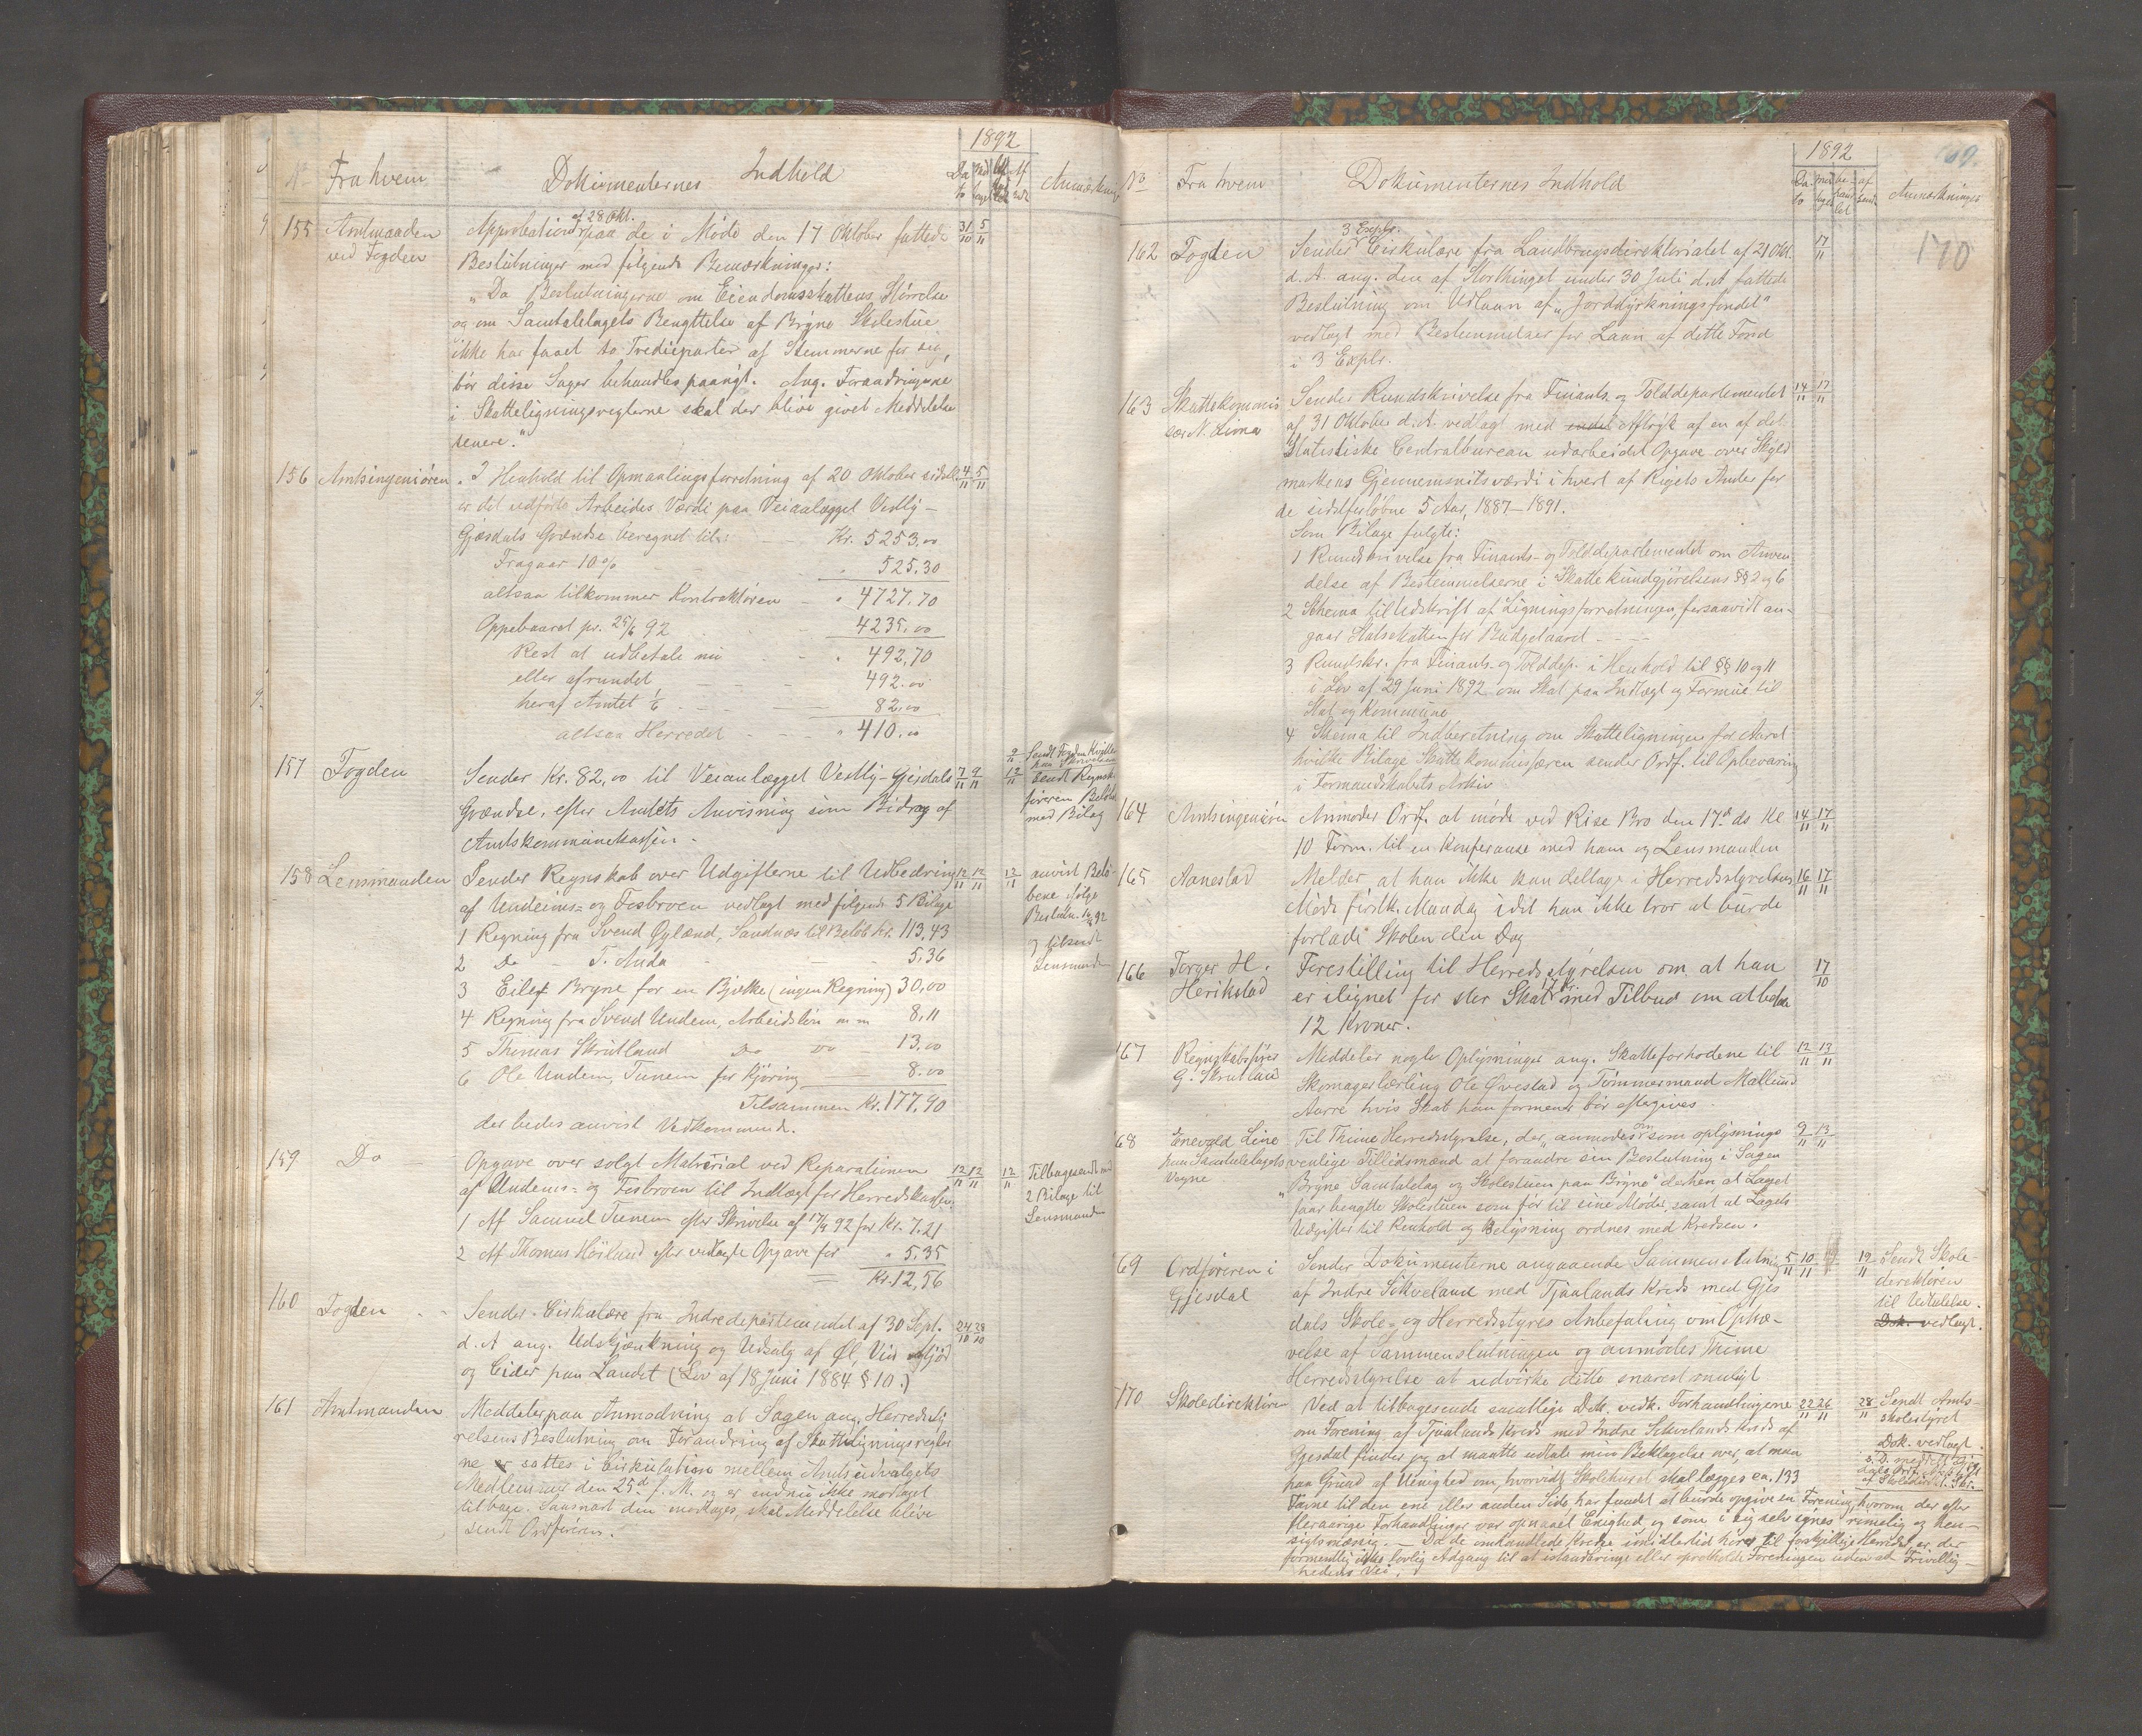 1892
Nº Fra hvem Dokumenternes Indhold Anmærkning
155 Amtmanden ved Fogden
Approbation af 28 Okt. paa de i Møde den 17 Oktober fattede 31/10 5/11
Beslutninger med følgende Bemærkninger:
"Da Beslutningerne om Eiendomsskattens Størrelse
og om Samtalelagets Benyttelse af Bryne Skolestue
ikke har faaet to Trediiparter af Stemmerne for sig,
bør disse Sager behandles paanyt. Ang. Forandringerne
i Skatteligningsreglerne skal der blive givet Meddelelse
senere."
156 Amtsingeniøren
I Henhold til Opmaalingsforretning af 20 Oktober sidstl. 4/11 5/11
er det udførte Arbeides Værdi paa Veianlægget Vestly-
Gjesdals Grændse beregnet til: Kr. 5253,00
Fragaar 10% " 525,30
altsaa tilkommer Kontraktøren " 4727,70
Oppebaaret pr. 25/6 92 4235,00
Rest at udbetale nu " 492,70
eller afrundet 492,00
heraf Amtet 1/6 82,00
altsaa Herredet " 410,00
157 Fogden
Sender Kr. 82,00 til Veianlægget Vestly-Gjesdals 7/11 9/11
Grændse, efter Amtets Anvisning som Bidrag af
Amtskommunekassen.
9/11 Sendt Fogden Kvitter
12/11 sendt Regnsk
føreren Beløb
med Bilag
158 Lensmanden
Sender Regnskab over Udgifterne til Udbedring 12/11 12/11
af Undeims- og Fosbroen vedlagt med følgende 5 Bilage
1 Regning fra Svend Øgland, Sandnæs til Beløb Kr. 113,43
2 Do - T. Auda 5,36
3 Eilef Bryne for en Bjelke (ingen Regning) 30,00
4 Regning fra Svend Undem, Arbeidsløn m m 8,11
5 Thomas Skrutland Do Do 13,00
6 Ole Undem, Tunem for Kjøring 8,00
Tilsammen Kr. 177,90
der bedes anvist Vedkommende.
12/11 anvist Belø-
bene ifølge
Beslutn.
og tilsendt
Lensmanden
159 Do
Opgave over solgt Material ved Reparationen 12/11 12/11
af Undems- og Fosbroen til Indtægt for Herredskassen
1 Af Samuel Tunem efter Skrivelse af 17/9 92 for Kr. 7,21
2 Af Thomas Høiland efter vedlagte Opgave for " 5,35
Kr. 12,56
12/11 Tilbagesendt med
2 Bilage til
Lensmanden
160 Fogden
Sender Cirkulære fra Indredepartementet af 30 Sept. 24/10 28/10
d. A ang. Udskjænkning og Udsalg af Øl, Vin Mjød
og Cider paa Landet (Lov af 18 Juni 1884 § 10.)
161 Amtmanden
Meddeler paa Anmodning at Sagen ang. Herredssty
relsens Beslutning om Forandring af Skatteligningsregler
ne er sattes i Cirkulation mellem Amtsudvalgets
Medlemmer den 25de f. M. og er endnu ikke modtaget
tilbage. Saasnart den modtages, skal Meddelelse blive
sendt Ordføreren.
1892
Nº Fra hvem Dokumenternes Indhold Anmærkninger
169.
170
162 Fogden
3 Expl.
Sender Cirkulære fra Landbrugsdirektoriatet af 21 Okt. 17/11
d. A. ang. den af Storthinget under 30 Juli d. A. fattede
Beslutning om Udlaan af "Jorddyrkningsfondet"
vedlagt med Bestemmelser for Laan af dette Fond
i 3 Explr.
163 Skattekommis
sær N. Lima
Sender Rundskrivelse fra Finants- og Tolddepartementet 14/11 17/11
af 31 Oktober d. A. vedlagt med Aftryk af en af det
Statistiske Centralbureau udarbeidet Opgave over Skyld
markens Gjennemsnitsværdi i hvert af Rigets Amter for
de sidstforløbne 5 Aar, 1887-1891.
Som Bilage fulgte:
1 Rundskrivelse fra Finants- og Tolddepartementet om Anven
delse af Bestemmelserne i Skattekundgjørelsens §§ 2 og 6
2 Schema til Udskrift af Ligningsforretningen, forsaavidt an-
gaar Statsskatten for Budgetaaret
3 Rundskr. fra Finants- og Tolddep. i Henhold til §§ 10 og 11
i Lov af 29 Juni 1892 om Skat paa Indtægt og Formue til
Stat og Kommune
4 Skema til Indberetning om Skatteligningen for Aaret
hvilke Bilage Skattekommissæren sender Ordf. til Opbevaring
i Formandskabets Arkiv
164 Amtsingeniøren
Anmoder Ordf. at møde ved Rise Bro den 17de ds Kl 14/11 17/11
10 Form. til en Konferanse med ham og Lensmanden
165 Aanestad
Melder, at han ikke kan deltage i Herredsstyrelsens 16/11 17/11
Møde førstk. Mandag idet han ikke tror at burde
forlade Skolen den Dag
166 Torger H.
Herikstad
Forestilling til Herredsstyrelsen om at han 17/10
er ilignet for stor Skat 17 Kr. med Tilbud om at betale
12 Kroner.
167 Regnskabsfører
G. Skrutlaud
Meddeler nogle Oplysninger ang. Skatteforholdene til 12/11 13/11
Skomagerlærling Ole Øvestad og Tømmermand Mallined
Aarre hvis Skat han formener bør eftergives.
168 Enevald Line
paa Samtalelagets
Vegne
Til Thime Herredsstyrelse, der "anmodes om som oplysnings 9/11 13/11
venlige Tillidsmænd at forandre sin Beslutning i Sagen
"Bryne Samtalelag og Skolestuen paa Bryne" derhen at Laget
faar benytte Skolestuen som før til sine Møder, samt at Lagets
Udgifter til Renhold og Belysning ordnes med Kredsen.
169 Ordføreren i
Gjesdal
Sender Dokumenterne angaaende Sammenslutning 5/11 10/11
af Indre Sikveland med Tjaalands Kreds med Gjes
dals Skole- og Herredsstyres Anbefaling om Ophæ-
velse af Sammenslutningen og anmodes Thime
Herredsstyrelse at udvirke dette snarest muligt
12/11 Sendt Skole-
direktøren
til Udtalelse.
Dok. vedlagt.
170 Skoledirektøren
Ved at tilbagesende samtlige Dok. vedk. Forhandlingerne 22/11 26/11
om Forening af Tjaalands Kreds med Indre Sikvelands Kreds af
Gjesdal finder jeg at maatte udtale min Beklagelse over, at man
paa Grund af Uenighed om, hvorvidt Skolehuset skal lægges ca. 133
Favne til den ene eller anden Side har fundet at burde opgive en Forening, hvorom der efter
fleraarige Forhandlinger var opnaaet Enighed og som i sig selv synes rimelig og hen-
sigtsmæssig. — Da de omhandlede Kredse imidlertid hører til forskjellige Herreder, er der
formentlig ikke lovlig Adgang til at istandbringe eller opretholde Foreningen uden ad Frivillig-
hedens Vei.
28/11 Sendt Amts-
skolestyret
Dok. vedlagt